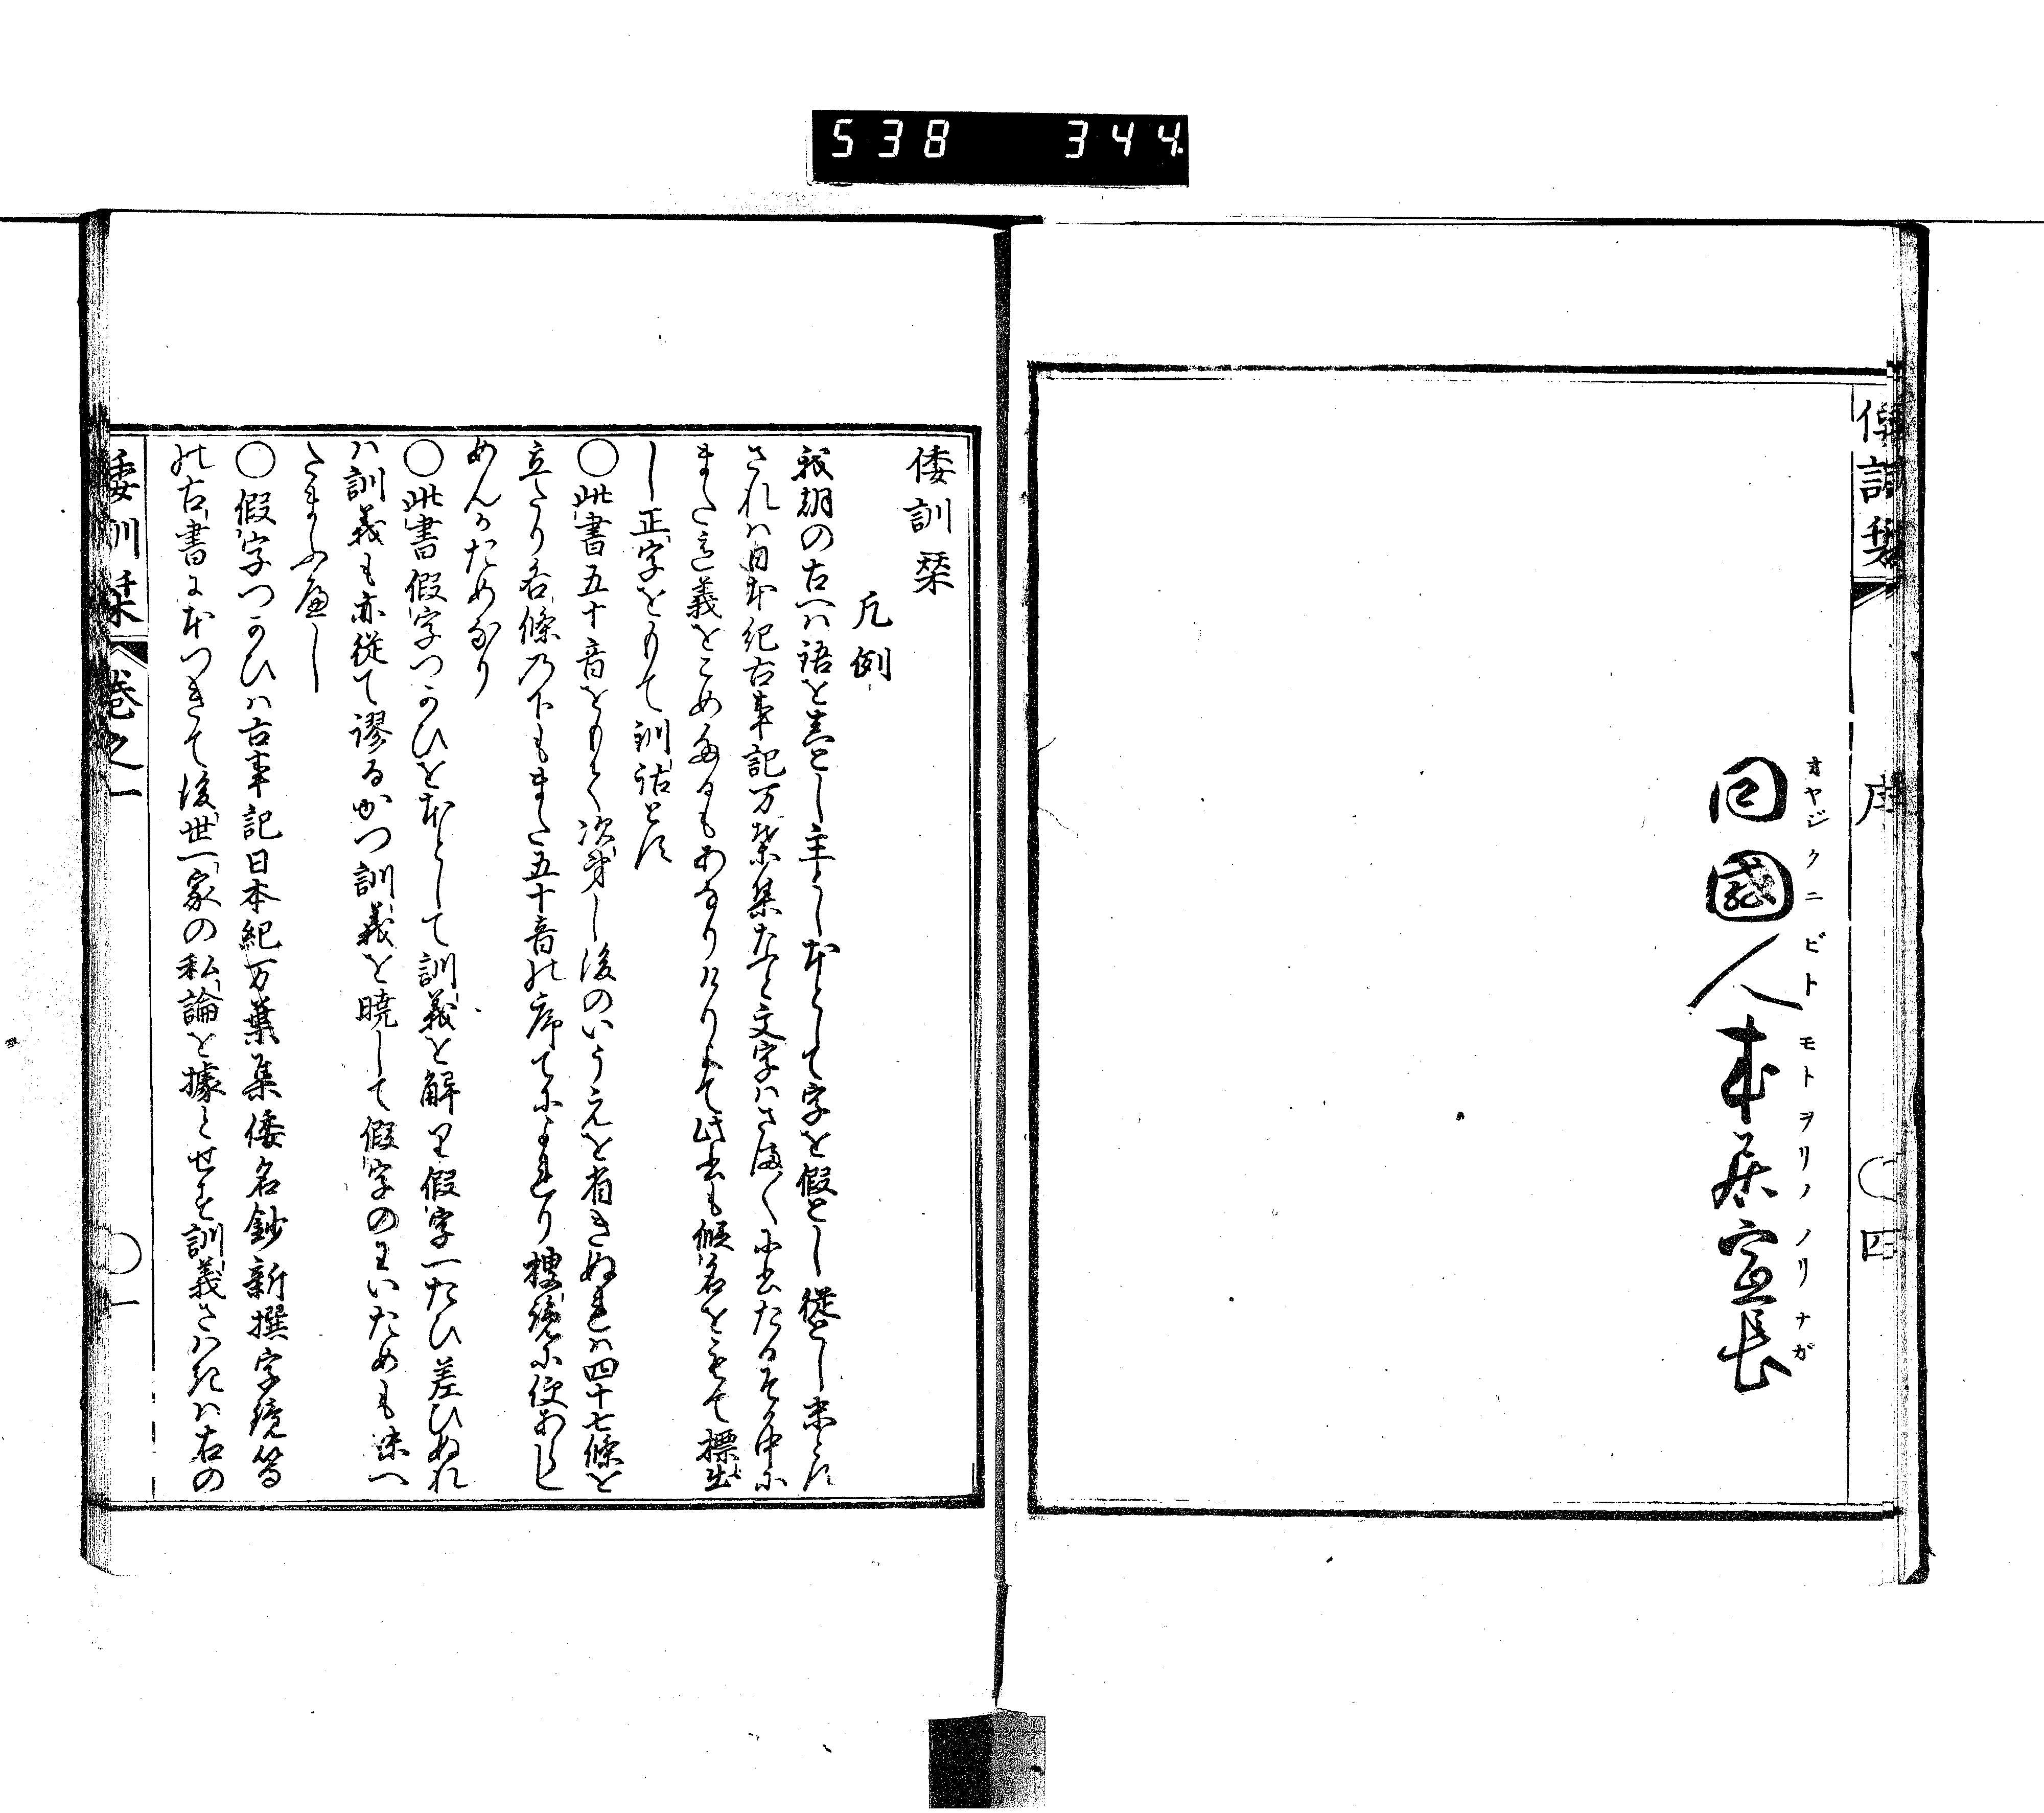 538 344
倭訓栞
序
四
同國人本居宣長
オヤジクニビトモトヲリノノリナガ
倭訓栞
凡例
我朝の古へは語を真とし主とし本として字を假とし從とし末とす
されは日本紀古事記万葉集なと文字はさま〳〵に出たるを其中に
また意義をこめたるもあなりけりよて此書も假名をもて標出
し正字をもて訓詁とす
○此書五十音をもて次第し後のいうえを省きぬれは四十七條を
立たり各條の下もまた五十音の序てによれり搜索に便あらし
めんかためなり
○此書假字つかひを本として訓義を解り假字一たひ差ひぬれ
は訓義も亦從て謬るかつ訓義を曉して假字のまいためも味へ
たまふへし
○假字つかひは古事記日本紀万葉集倭名鈔新撰字鏡等
の古書に本つきて後世一家の私論を據とせす訓義さはきは右の
倭訓栞
卷之一
○一